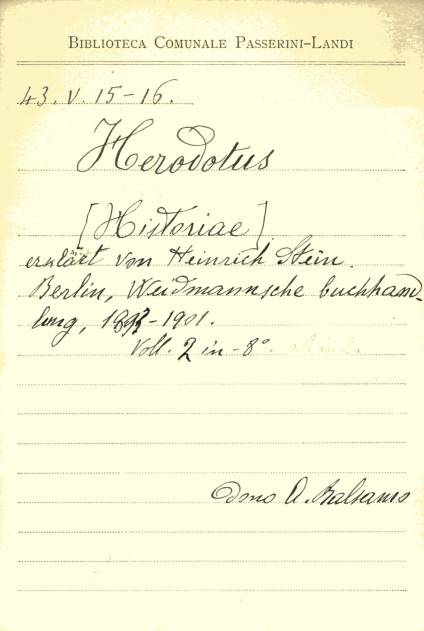 BIBLIOTECA COMUNALE PASSERINI-LANDI
43. V. 15-16.
Herodotus
[Historiae]
erklärt von Heinrich Stein.
Berlin, Weidmannsche buchhand-
lung, 1893-1901.
Voll. 2 in-8°.
dono A. Balsamo